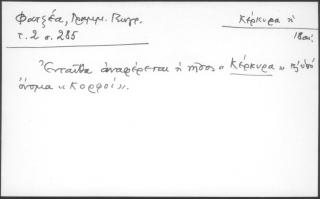 Φατζέα, Γραμμ. Γεωγρ.
τ. 2 σ. 285
Κέρκυρα ἡ
18 αἰ.
Ἐνταῦθα ἀναφέρεται ἡ νῆσος « Κέρκυρα » ὑπό
ὄνομα « Κορφοί».